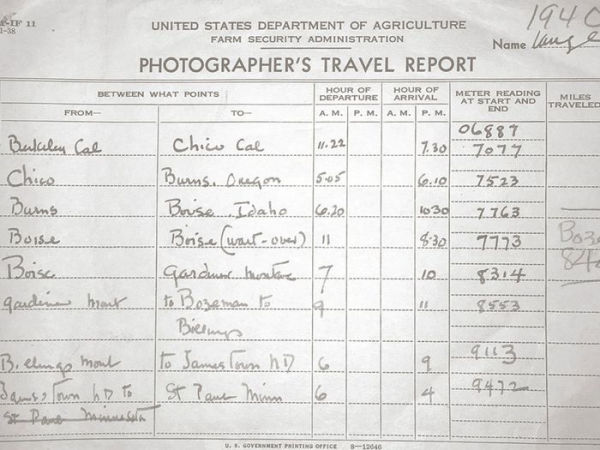 IF 11
1-38
UNITED STATES DEPARTMENT OF AGRICULTURE
FARM SECURITY ADMINISTRATION
1940
Name Lange
PHOTOGRAPHER'S TRAVEL REPORT
BETWEEN WHAT POINTS HOUR OF DEPARTURE HOUR OF ARRIVAL METER READING AT START AND END MILES TRAVELED
FROM— TO— A. M. P. M. A. M. P. M.
06887
Berkeley Cal Chico Cal 11.22 7.30 7077
Chico Burns, Oregon 5.05 6.10 7523
Burns Boise, Idaho 6.20 10.30 7763
Boise Boise (wait-over) 11 8.30 7773
Boise Gardiner Montana 7 10 8314
Gardiner Mont to Bozeman to 9 11 8553
Billings
Billings Mont to Jamestown ND 6 9 9113
Jamestown ND to St Paul Minn 6 4 9472
St Paul Minnesota
U. S. GOVERNMENT PRINTING OFFICE 8—12646